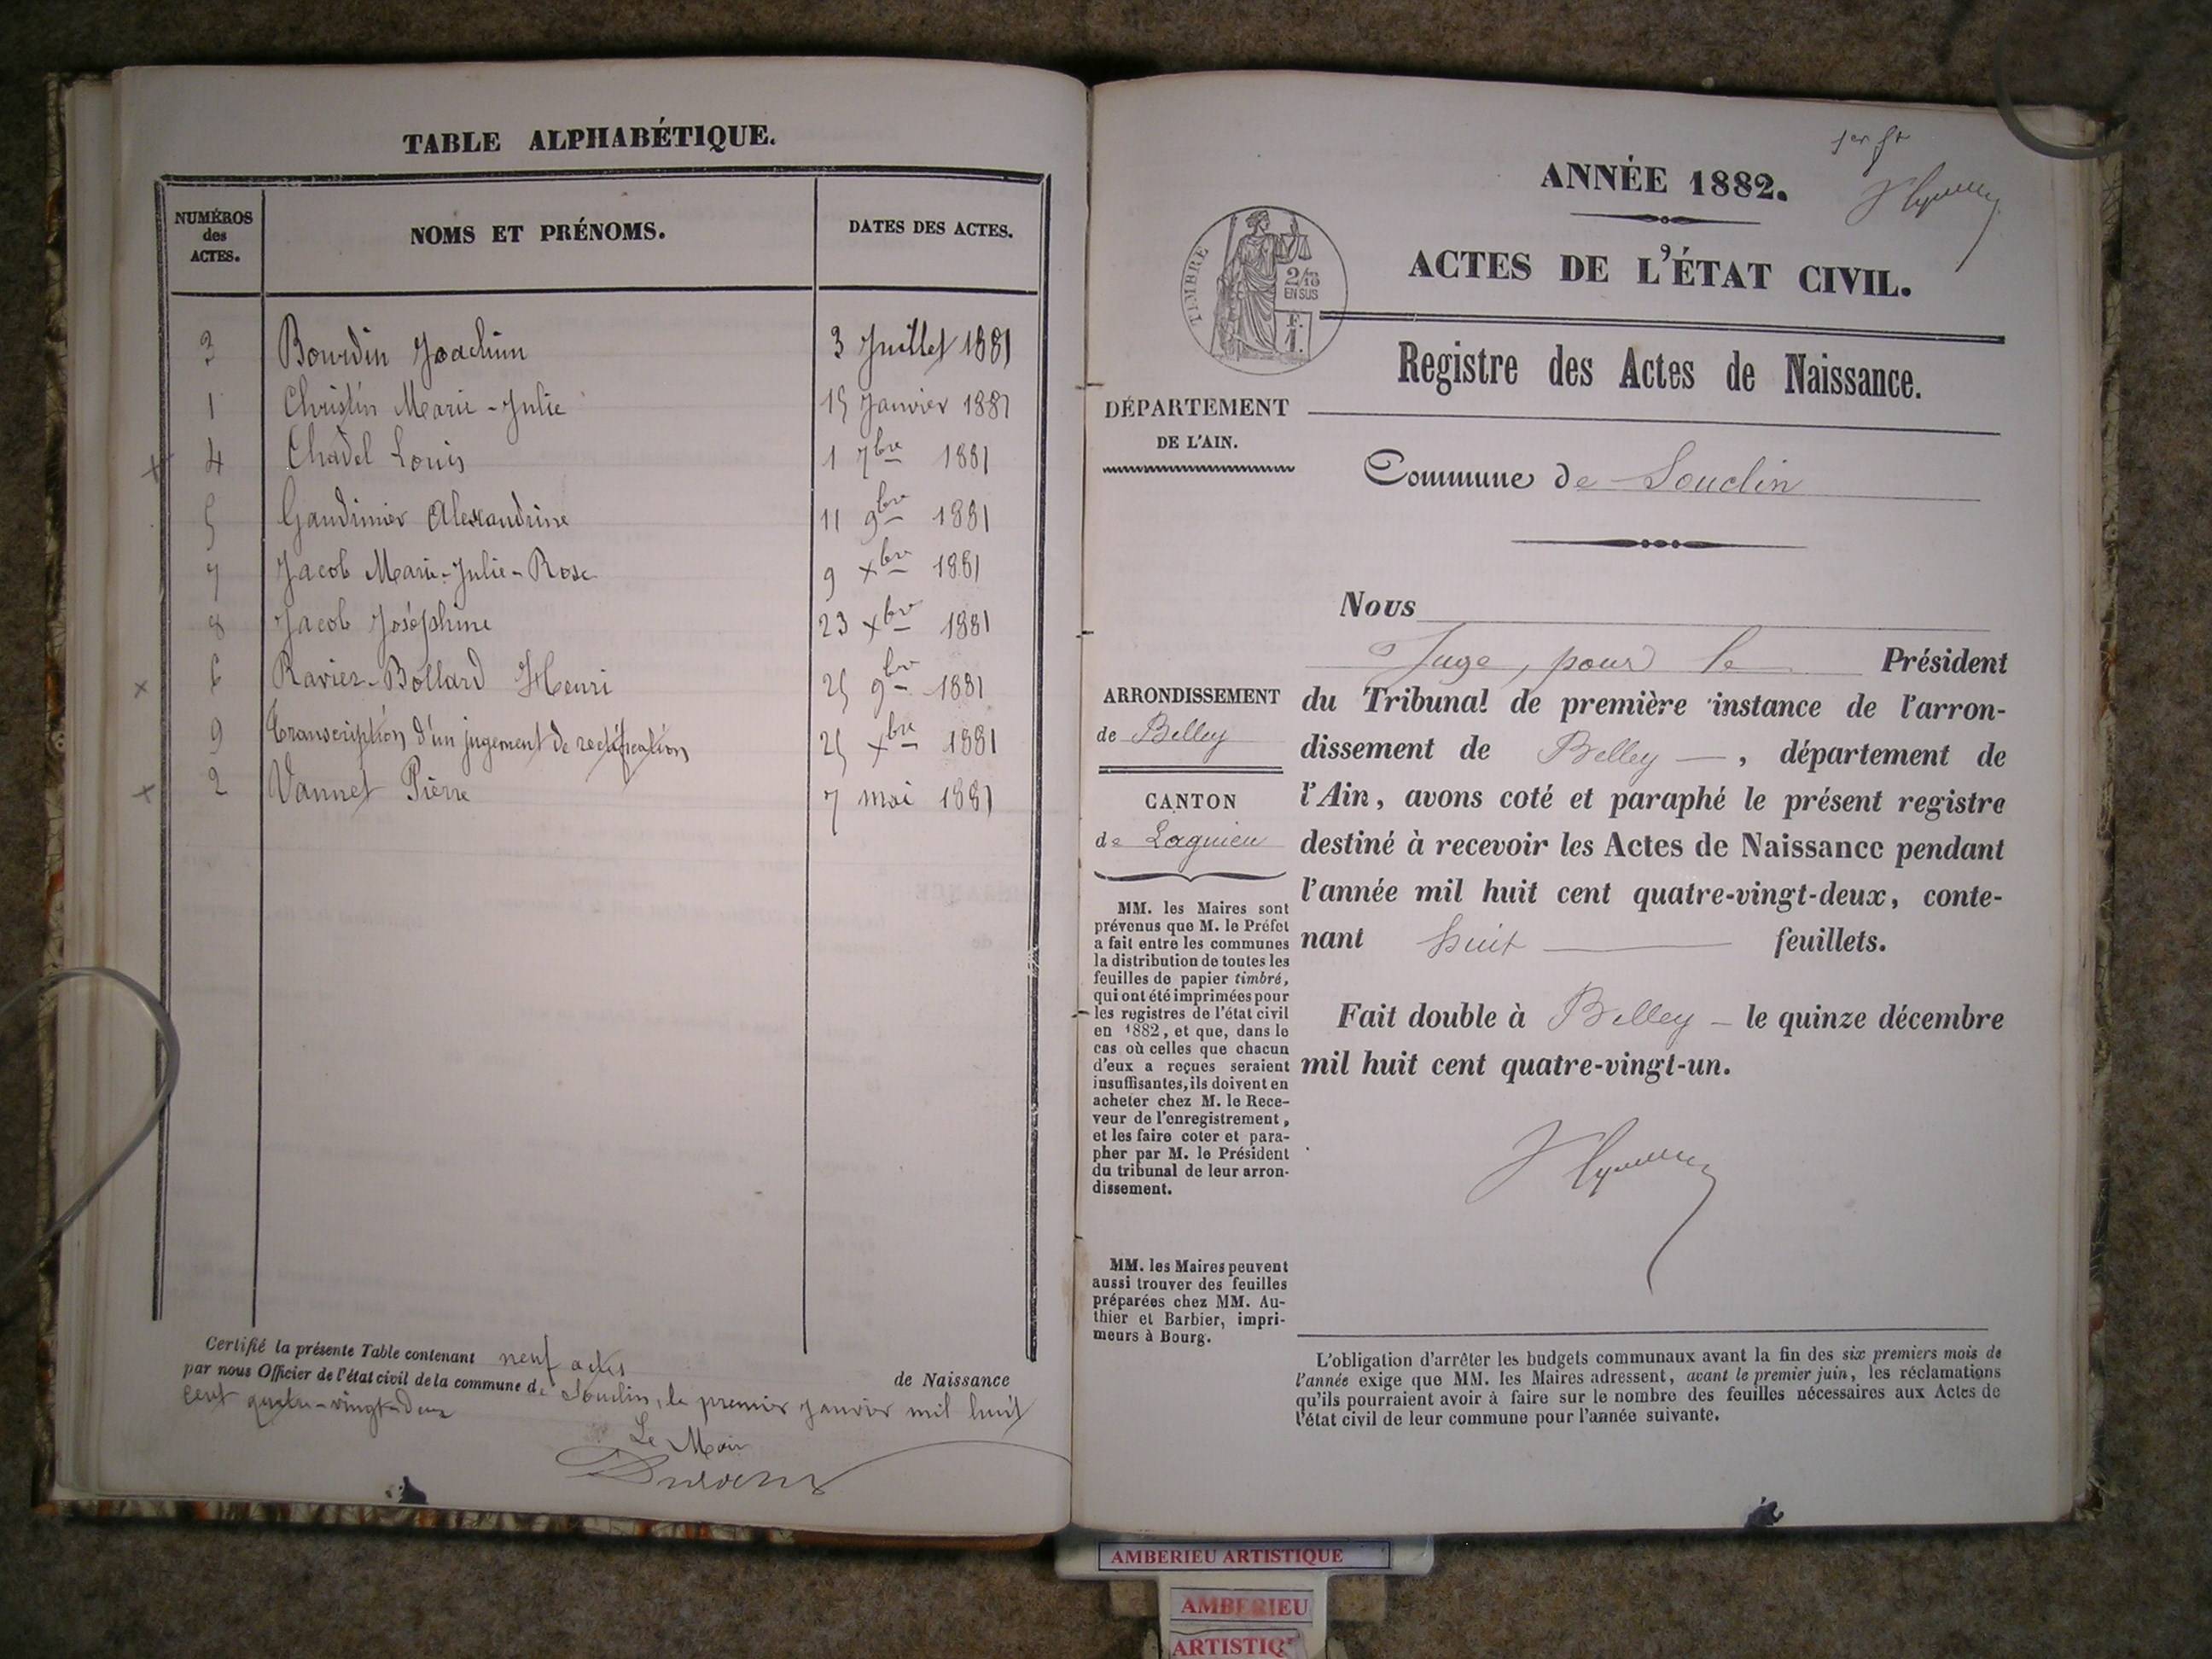 TABLE ALPHABÉTIQUE.
NUMÉROS
des
ACTES.
NOMS ET PRÉNOMS.
DATES DES ACTES.
3 Bourdin Joachim 3 Juillet 1881
1 Christin Marie-Julie 15 Janvier 1881
x 4 Chadel Louis 1 7bre 1881
5 Gaudimier Alexandrine 11 9bre 1881
7 Jacob Marie-Julie-Rose 9 xbre 1881
8 Jacob Joséphine 23 xbre 1881
x 6 Ravier-Bollard Henri 25 9bre 1881
9 Transcription d'un jugement de rectification 25 xbre 1881
x 2 Vannet Pierre 7 mai 1881
Certifié la présente Table contenant neuf actes de Naissance
par nous Officier de l'état civil de la commune de Souclin, le premier janvier mil huit
cent quatre-vingt-deux
Le Maire
1er ft
ANNÉE 1882.
ACTES DE L'ÉTAT CIVIL.
TIMBRE
2/10
EN SUS
F.
1.
Registre des Actes de Naissance.
DÉPARTEMENT
DE L'AIN.
Commune de Souclin
Nous
Juge, pour le Président
du Tribunal de première instance de l'arron-
dissement de Belley —, département de
l'Ain, avons coté et paraphé le présent registre
destiné à recevoir les Actes de Naissance pendant
l'année mil huit cent quatre-vingt-deux, conte-
nant huit — feuillets.
Fait double à Belley — le quinze décembre
mil huit cent quatre-vingt-un.
ARRONDISSEMENT
de Belley
CANTON
de Lagnieu
MM. les Maires sont
prévenus que M. le Préfet
a fait entre les communes
la distribution de toutes les
feuilles de papier timbré,
qui ont été imprimées pour
les registres de l'état civil
en 1882, et que, dans le
cas où celles que chacun
d'eux a reçues seraient
insuffisantes, ils doivent en
acheter chez M. le Rece-
veur de l'enregistrement,
et les faire coter et para-
pher par M. le Président
du tribunal de leur arron-
dissement.
MM. les Maires peuvent
aussi trouver des feuilles
préparées chez MM. Au-
thier et Barbier, impri-
meurs à Bourg.
L'obligation d'arrêter les budgets communaux avant la fin des six premiers mois de
l'année exige que MM. les Maires adressent, avant le premier juin, les réclamations
qu'ils pourraient avoir à faire sur le nombre des feuilles nécessaires aux Actes de
l'état civil de leur commune pour l'année suivante.
AMBERIEU ARTISTIQUE
AMBERIEU
ARTISTIQ